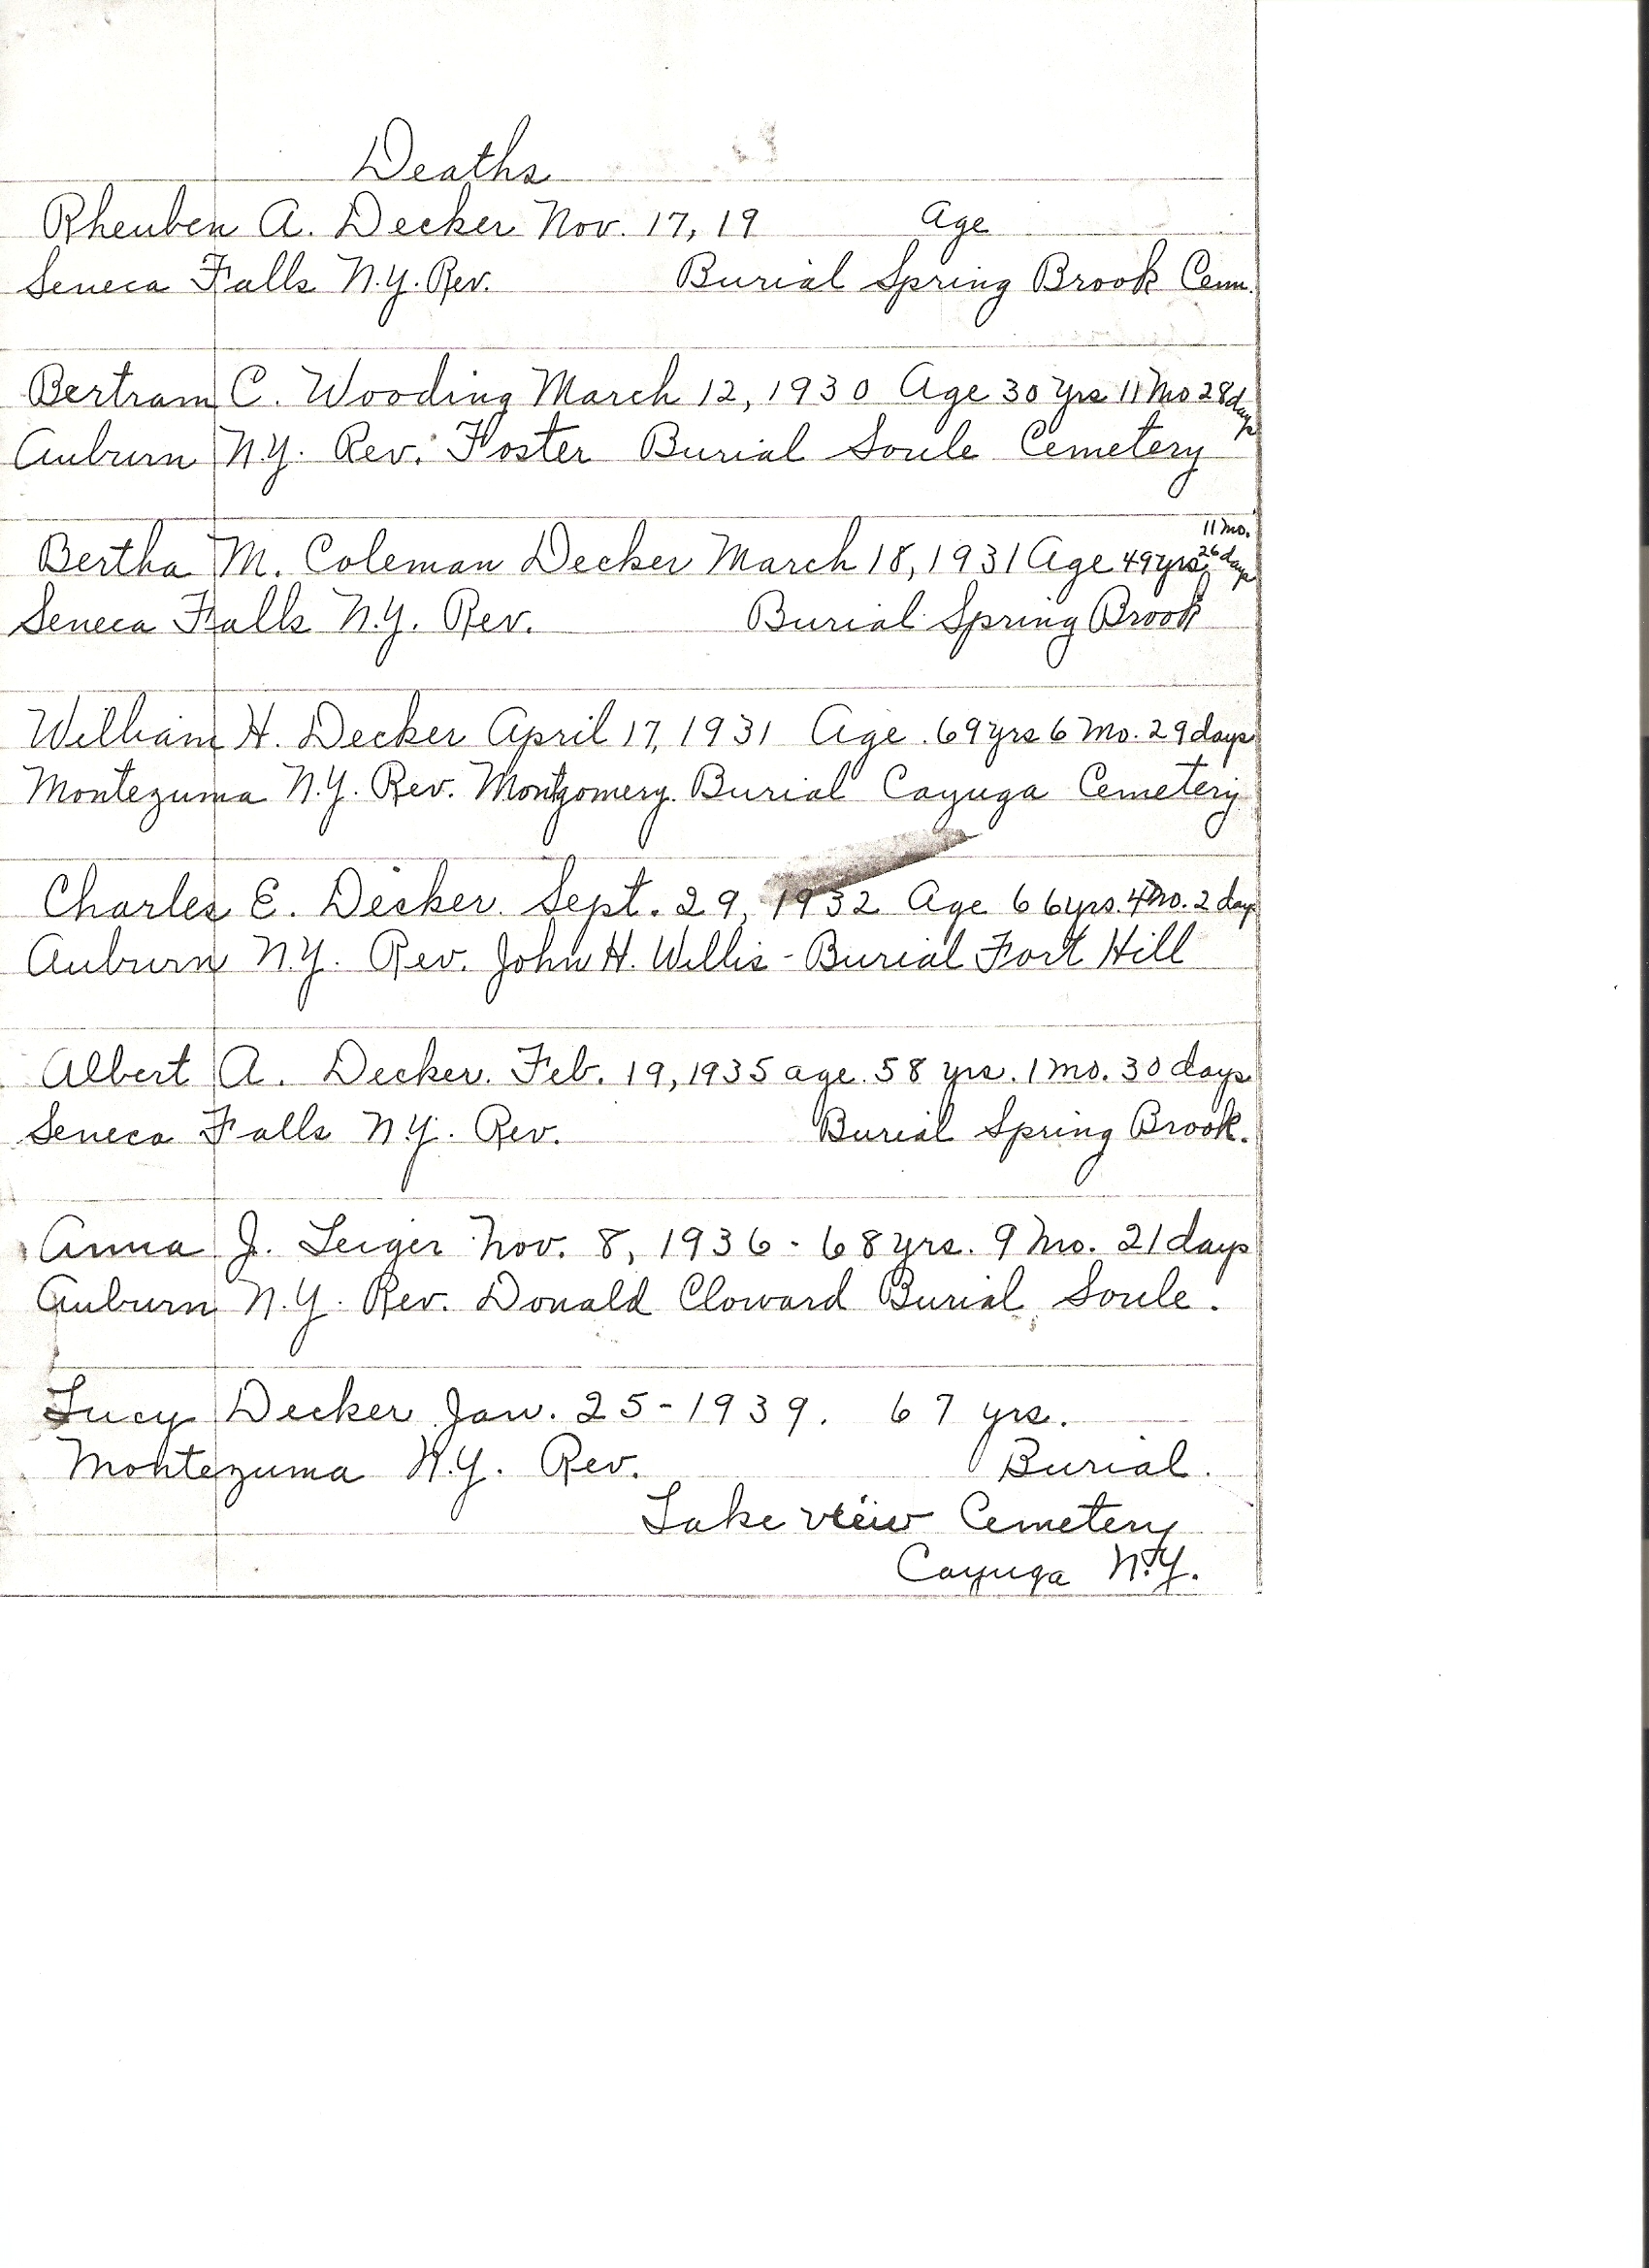 Deaths
Rheuben A. Decker Nov. 17, 19 Age
Seneca Falls N.Y. Rev. Burial Spring Brook Cem.
Bertram C. Wooding March 12, 1930 Age 30 yrs 11 Mo 28 days
Auburn N.Y. Rev. Foster Burial Soule Cemetery
Bertha M. Coleman Decker March 18, 1931 Age 49 yrs 11 mo. 26 days
Seneca Falls N.Y. Rev. Burial Spring Brook
William H. Decker April 17, 1931 Age. 69 yrs 6 Mo. 29 days
Montezuma N.Y. Rev. Montgomery. Burial Cayuga Cemetery
Charles E. Decker. Sept. 29, 1932 Age 66 yrs. 4 Mo. 2 days
Auburn N.Y. Rev. John H. Willis - Burial Fort Hill
Albert A. Decker. Feb. 19, 1935 age. 58 yrs. 1 mo. 30 days
Seneca Falls N.Y. Rev. Burial Spring Brook.
Anna J. Leiger Nov. 8, 1936 - 68 yrs. 9 Mo. 21 days
Auburn N.Y. Rev. Donald Cloward Burial Soule.
Lucy Decker Jan. 25 - 1939. 67 yrs.
Montezuma N.Y. Rev. Burial.
Lake view Cemetery
Cayuga N.Y.